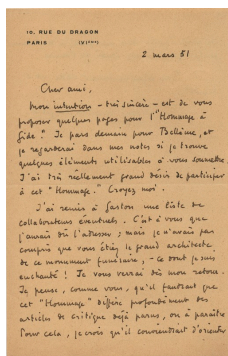 10, RUE DU DRAGON
PARIS (VIème)
2 mars 51
Cher ami,
Mon intention - très sincère - est de vous
proposer quelques pages pour l'"Hommage à
Gide". Je pars demain pour Bellême, et
je regarderai dans mes notes si je trouve
quelques éléments utilisables à vous soumettre.
J'ai très réellement grand désir de participer
à cet "Hommage". Croyez moi.
J'ai remis à Gaston une liste de
collaborateurs éventuels. C'est à vous que
j'aurais dû l'adresser ; mais je n'avais pas
compris que vous étiez le grand architecte
de ce monument funéraire, - ce dont je suis
enchanté ! Je vous verrai dès mon retour.
Je pense, comme vous, qu'il faudrait que
cet "Hommage" diffère profondément des
articles de critique déjà parus, ou à paraître.
Pour cela, je crois qu'il conviendrait d'orienter